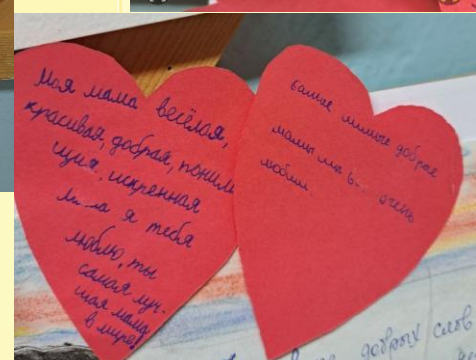 Моя мама весёлая,
красивая, добрая, поним
щия, искренная
я тебя
люблю, ты
самая луч-
шая мама
в мире
самые милые добрые
мамы мы очень
любим
добрых слов